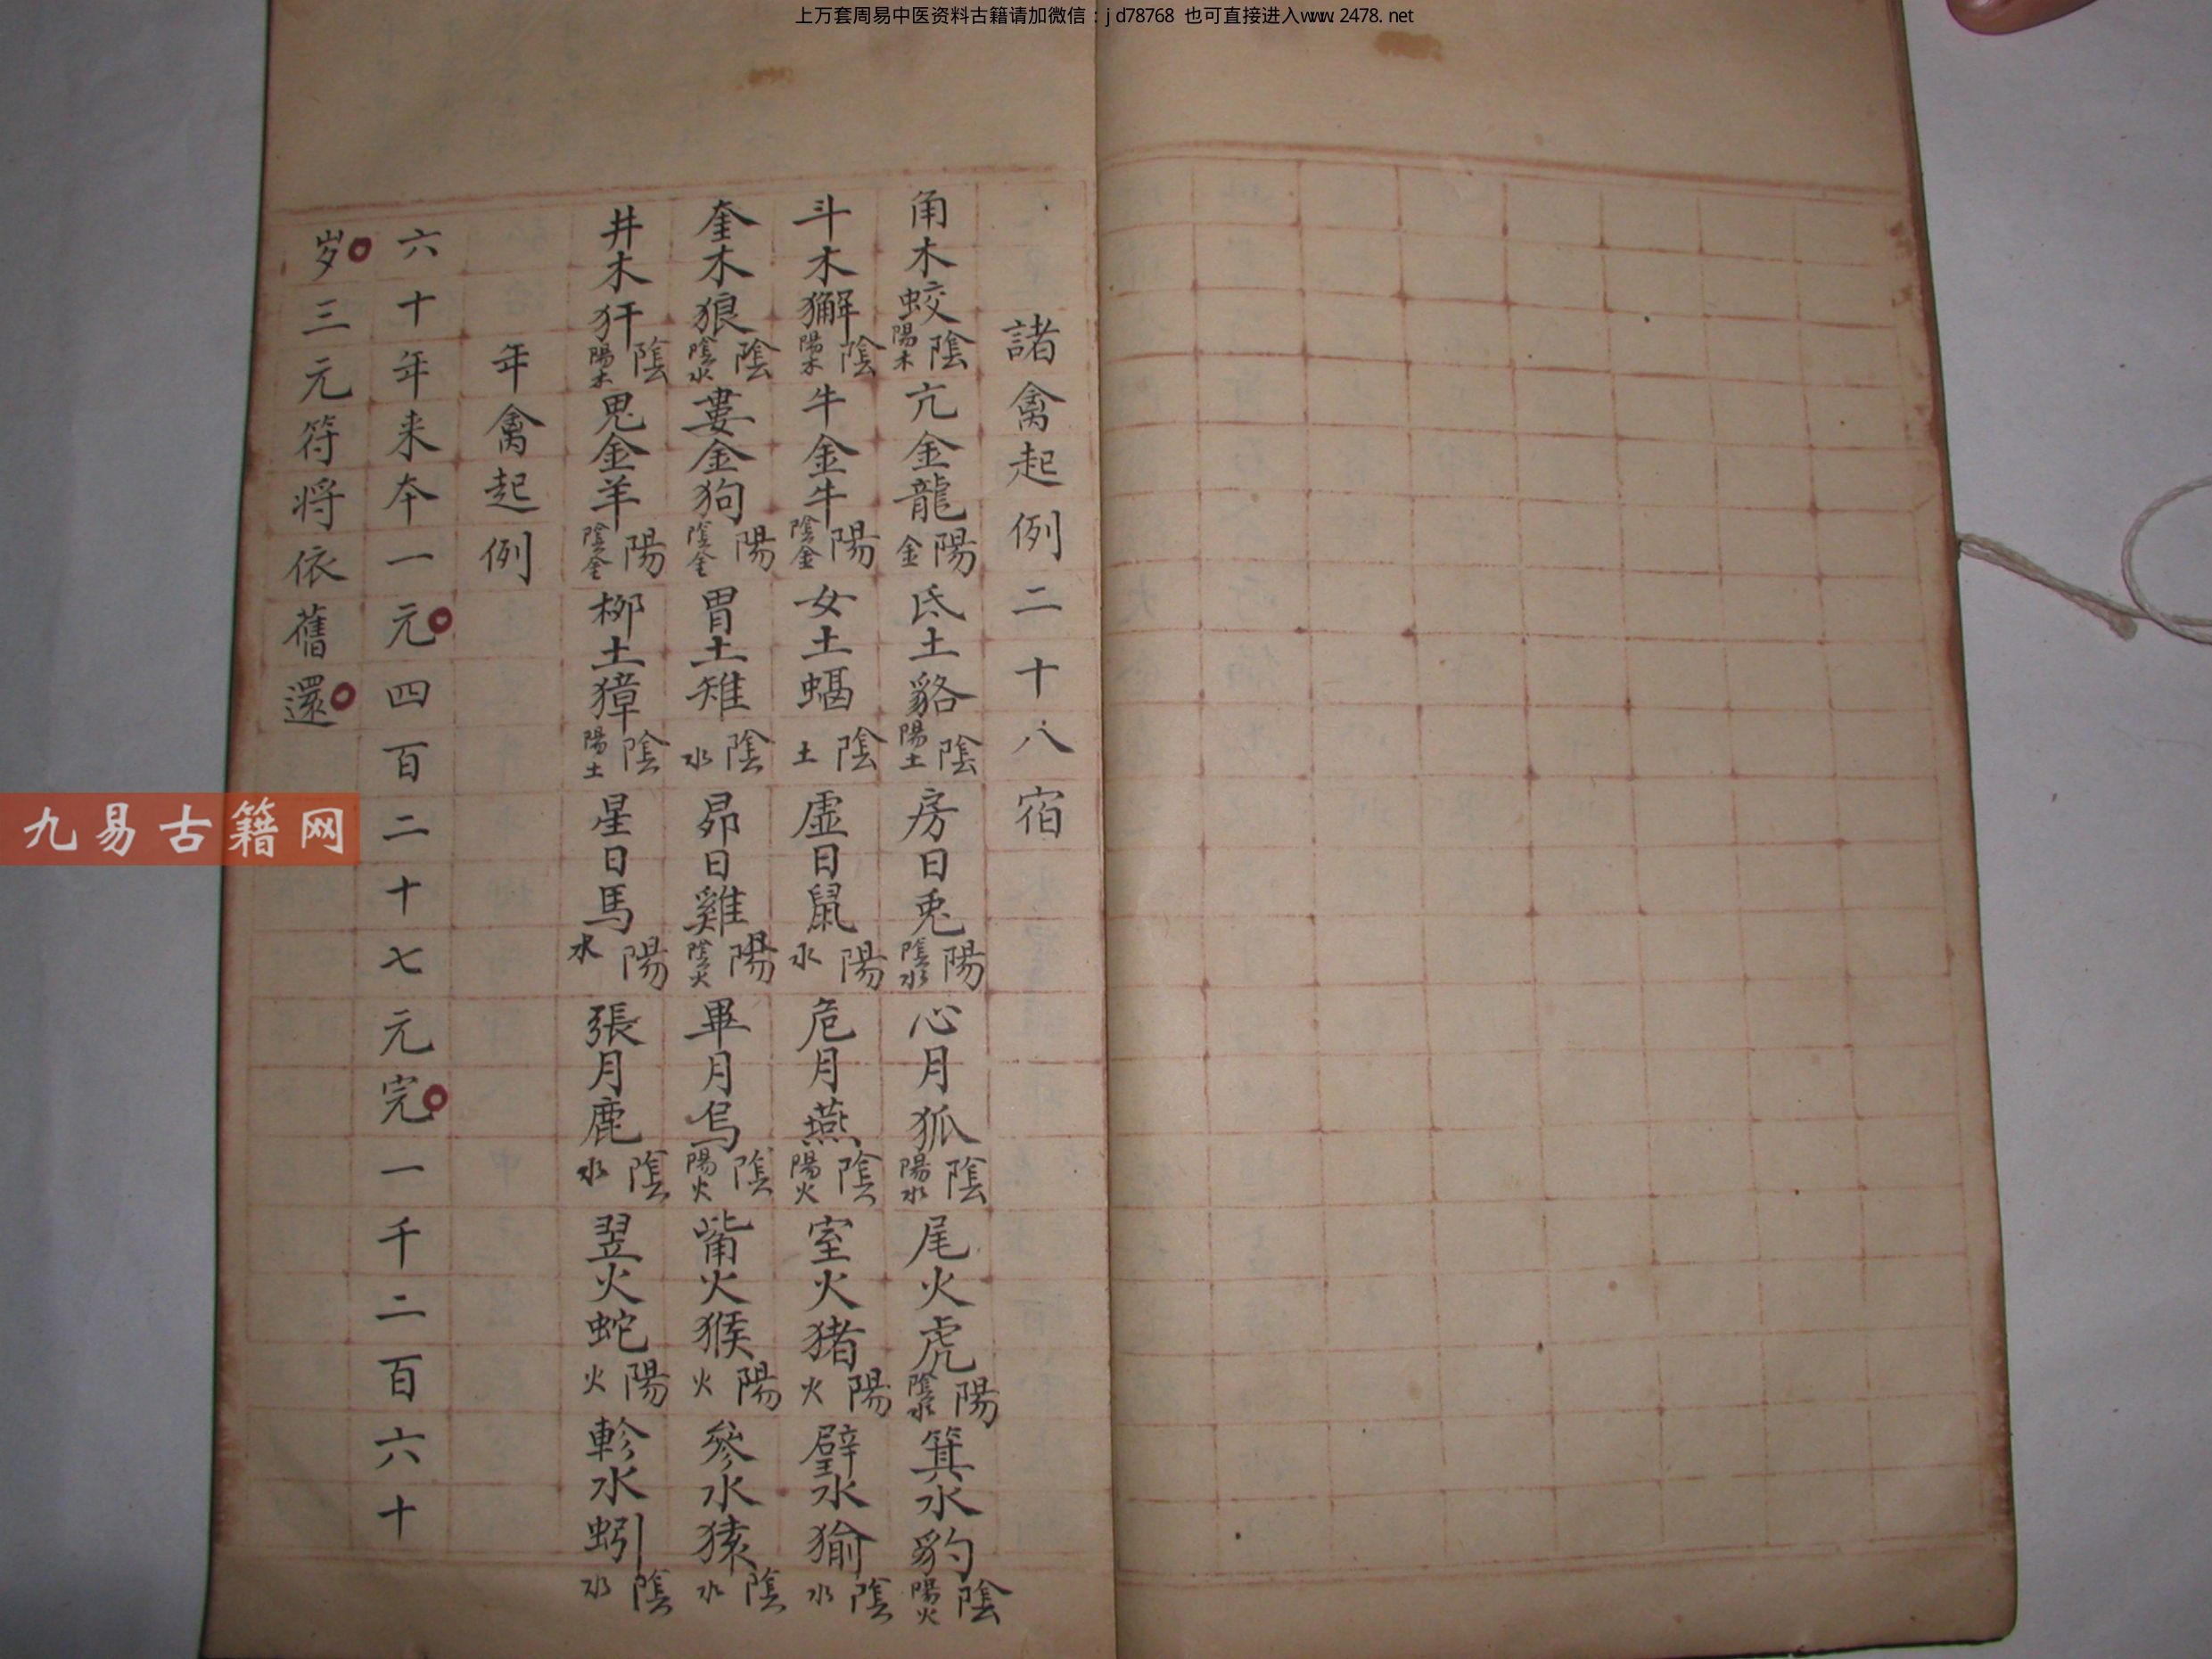 上万套周易中医资料古籍请加微信：jd78768 也可直接进入www.2478.net
諸禽起例二十八宿
角木蛟陰陽木亢金龍陽金氐土貉陰陽土房日兎陽陰水心月狐陰陽水尾火虎陽陰水箕水豹陰陽火
斗木獬陰陽木牛金牛陽陰金女土蝠陰土虛日鼠陽水危月燕陰陽火室火猪陽火壁水㺄陰水
奎木狼陰陰水婁金狗陽陰金胃土雉陰水昴日雞陽陰火畢月烏陰陽火觜火猴陽火參水猿陰水
井木犴陰陽木鬼金羊陽陰金柳土獐陰陽土星日馬陽水張月鹿陰水翌火蛇陽火軫水蚓陰水
年禽起例
六十年来本一元四百二十七元完一千二百六十
岁三元符将依舊還
九易古籍网